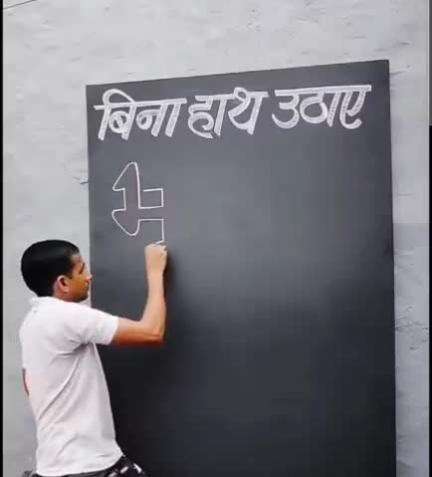 बिना हाथ उठाए